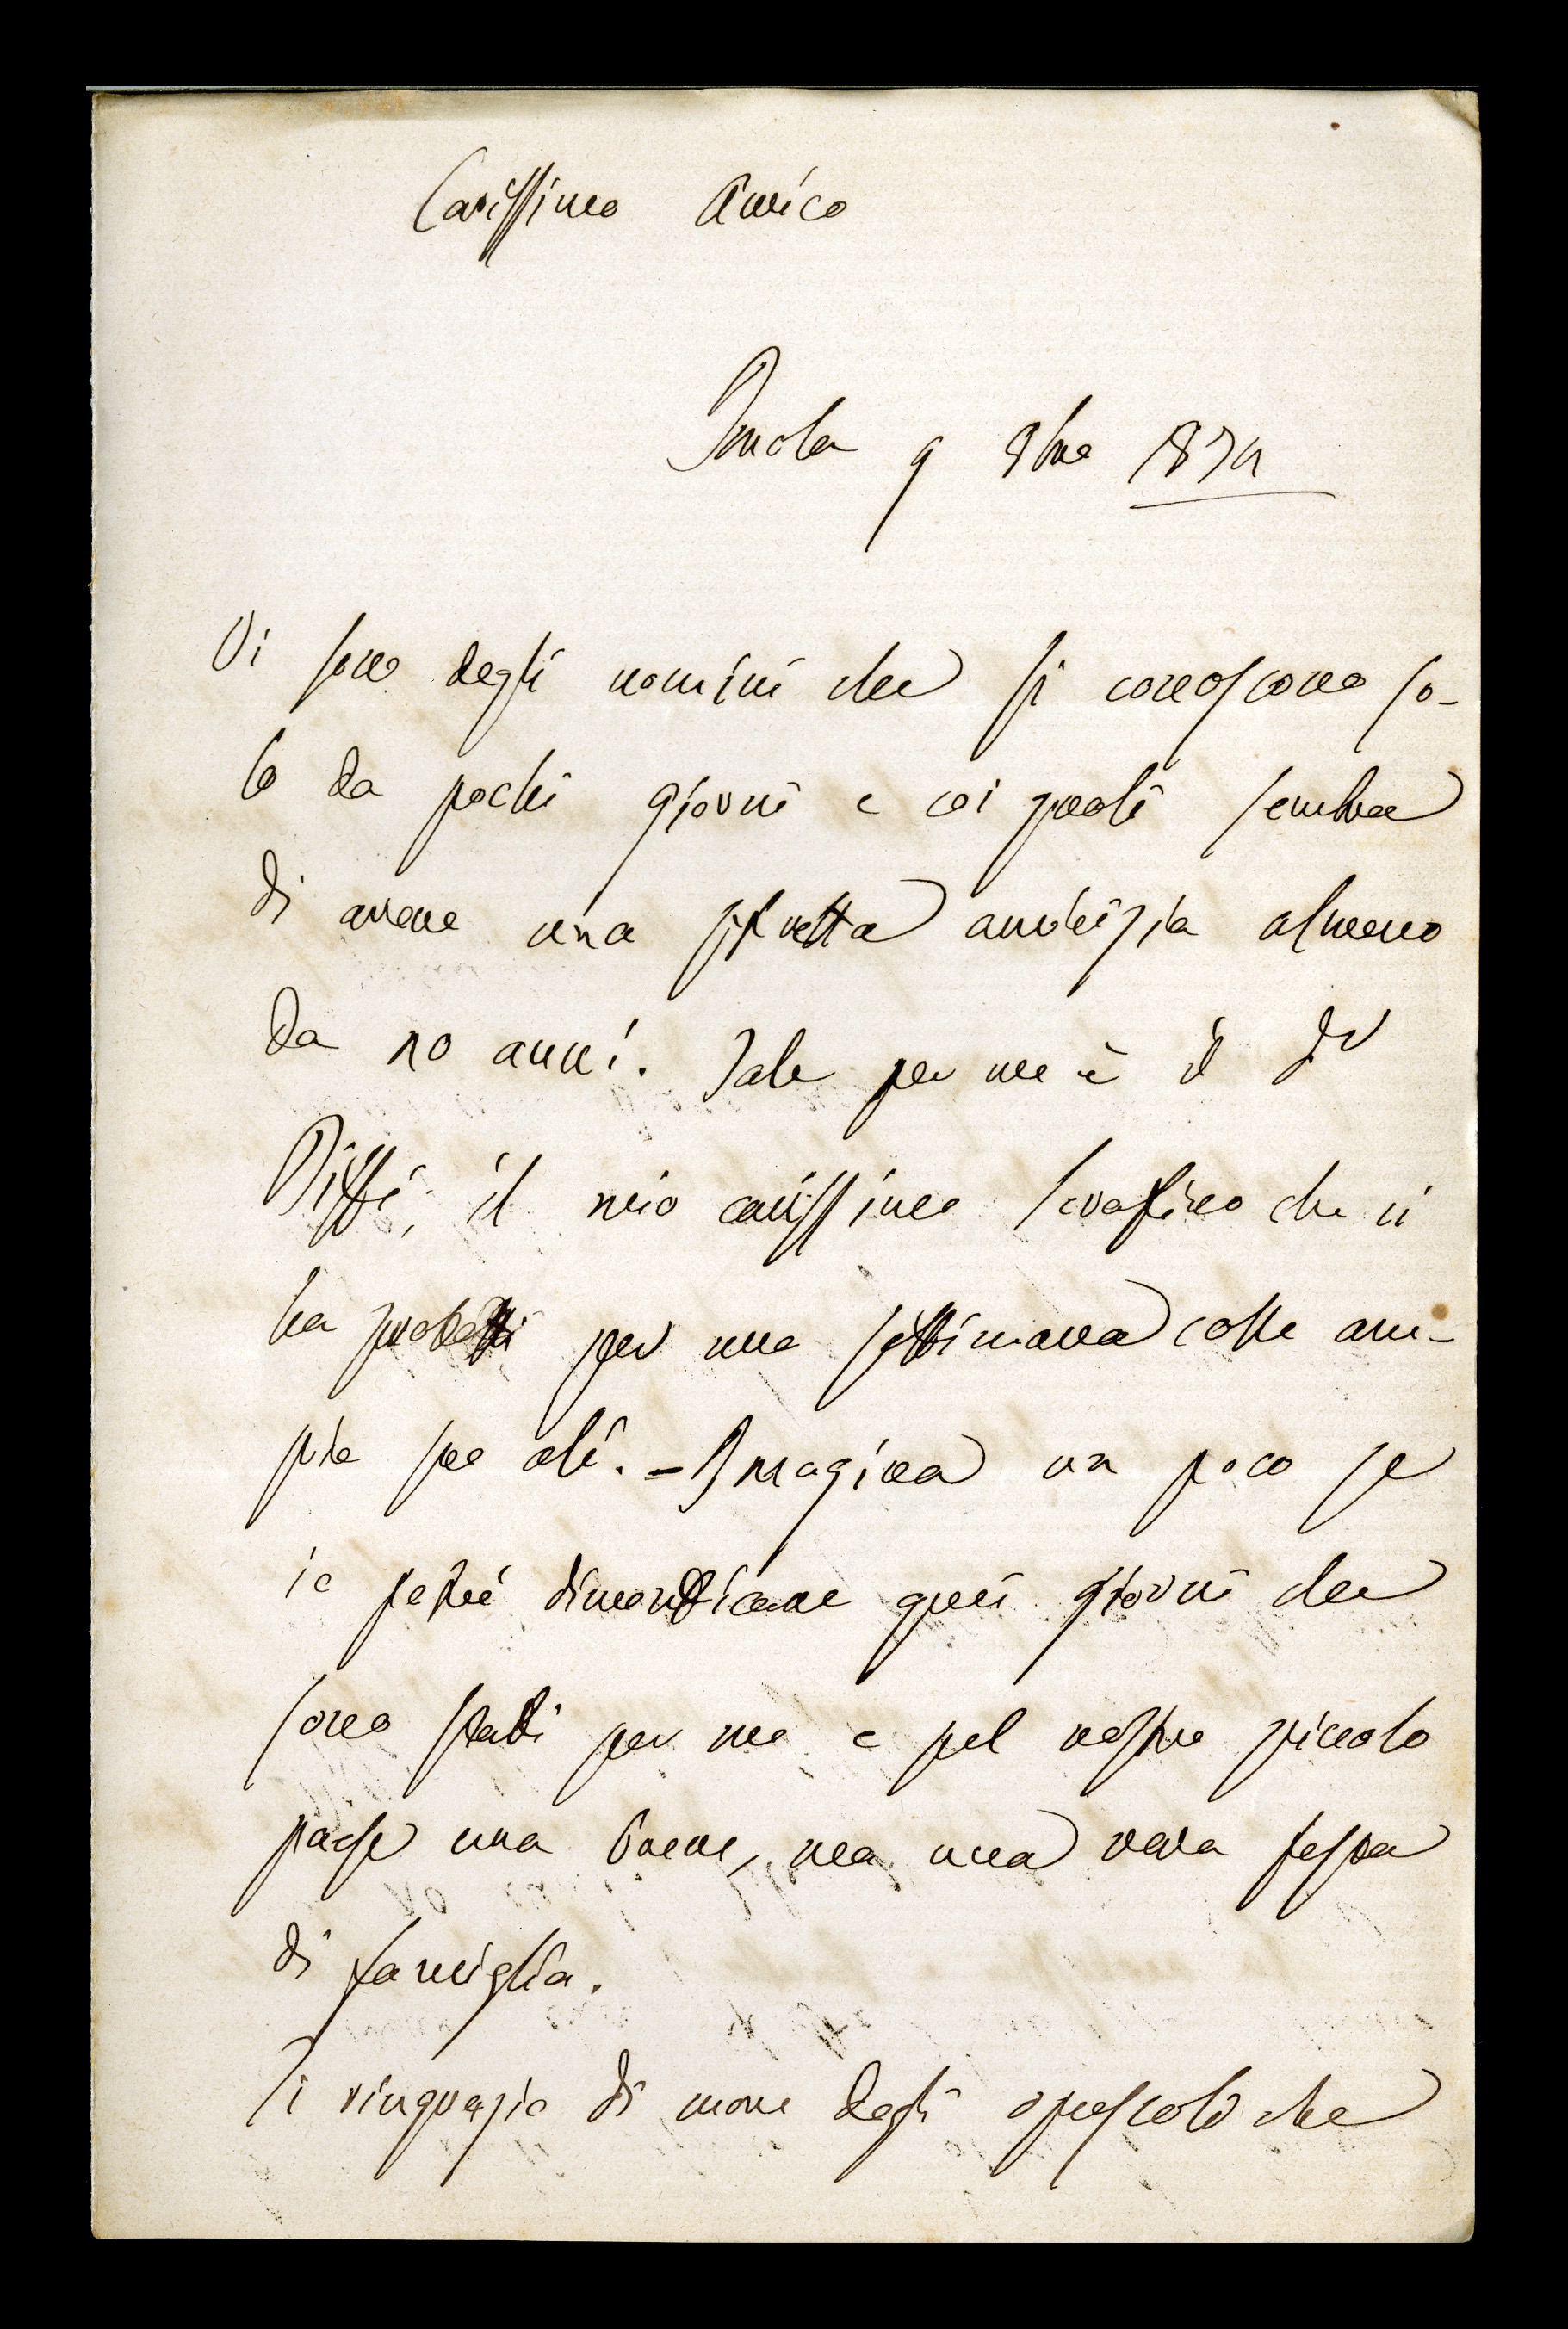 Carissimo Amico
Imola 9 8bre 1874
Vi sono degli uomini che si conoscono so-
lo da pochi giorni e coi quali sembra
di avere una stretta amicizia almeno
da 10 anni. Tale per me è il Dr
Biffi, il mio carissimo Serafino che ci
ha protetti per una settimana colle am-
pie sue ali. - Imagina un poco se
io potrò dimenticare quei giorni che
sono stati per me e pel nostro piccolo
paese una breve, ma una vera festa
di famiglia.
Ti ringrazio di cuore degli opuscoli che